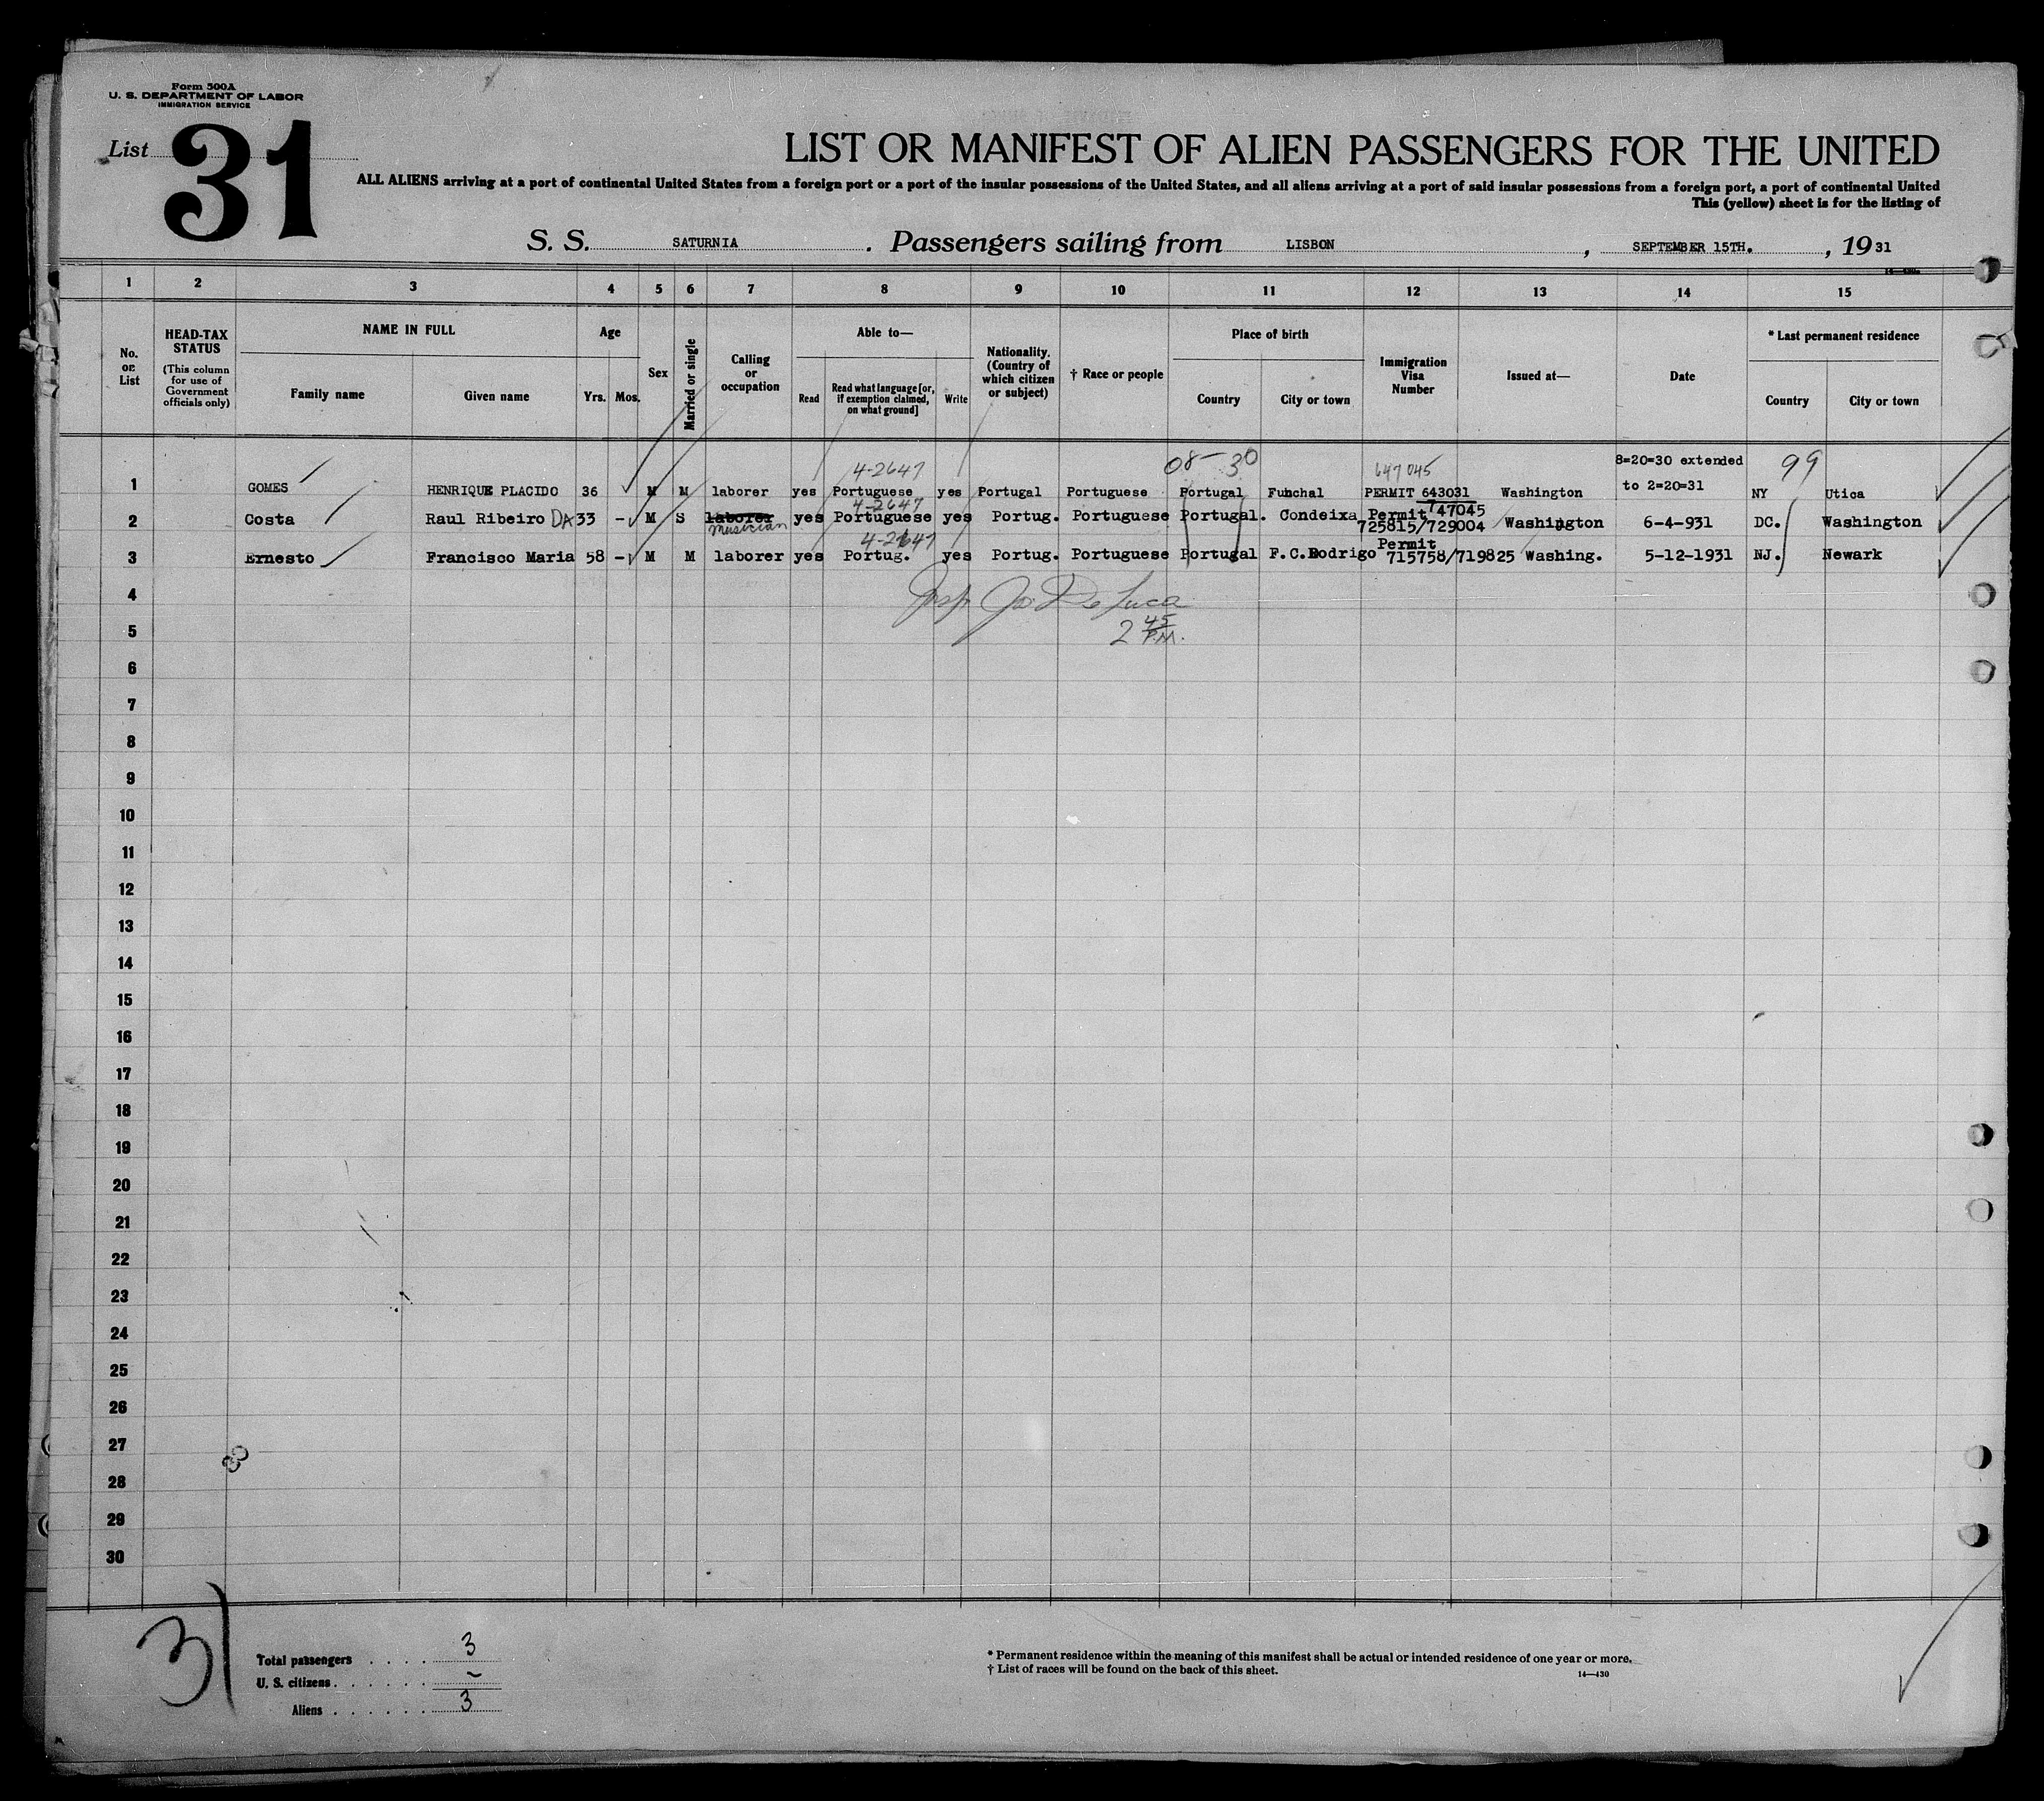 Form 500A
U. S. DEPARTMENT OF LABOR
IMMIGRATION SERVICE
List 31
LIST OR MANIFEST OF ALIEN PASSENGERS FOR THE UNITED
ALL ALIENS arriving at a port of continental United States from a foreign port or a port of the insular possessions of the United States, and all aliens arriving at a port of said insular possessions from a foreign port, a port of continental United
This (yellow) sheet is for the listing of
S. S. SATURNIA . Passengers sailing from LISBON , SEPTEMBER 15TH. , 19 31
1 2 3 4 5 6 7 8 9 10 11 12 13 14 15
No. on List
HEAD-TAX STATUS (This column for use of Government officials only)
NAME IN FULL
Family name Given name
Age
Yrs. Mos.
Sex
Married or single
Calling or occupation
Able to—
Read Read what language [or, if exemption claimed, on what ground] Write
Nationality. (Country of which citizen or subject)
† Race or people
Place of birth
Country City or town
Immigration Visa Number
Issued at—
Date
* Last permanent residence
Country City or town
4-2647 08- 30 647045 8=20=30 extended 99
1 GOMES HENRIQUE PLACIDO 36 M M laborer yes Portuguese yes Portugal Portuguese Portugal Funchal PERMIT 643031 Washington to 2=20=31 NY Utica
4-2647 747045
2 Costa Raul Ribeiro DA 33 - M S laborer yes Portuguese yes Portug. Portuguese Portugal. Condeixa Permit 725815/729004 Washington 6-4-931 DC. Washington
musician
4-2647
3 Ernesto Francisco Maria 58 - M M laborer yes Portug. yes Portug. Portuguese Portugal F.C.Rodrigo Permit 715758/719825 Washing. 5-12-1931 NJ. Newark
4
De Luca
5
2 45 P.M.
6
7
8
9
10
11
12
13
14
15
16
17
18
19
20
21
22
23
24
25
26
27
28
29
30
31
Total passengers . . . . 3
U. S. citizens . . . . . . -
Aliens . . . . . . 3
* Permanent residence within the meaning of this manifest shall be actual or intended residence of one year or more.
† List of races will be found on the back of this sheet.
14—430